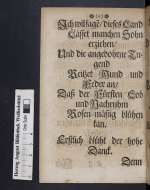 Ich willsage / dieses Land
Lässet manchen Sohn
erziehen /
Und die angebohrne Tu-
gend
Reitzet Mund und
Feder an /
Daß der Fürsten Lob
und Nachruhm
Rosen-mässig blühen
kan.
Erstlich bleibt der hohe
Danck.
Denn
Herzog August Bibliothek Wolfenbüttel